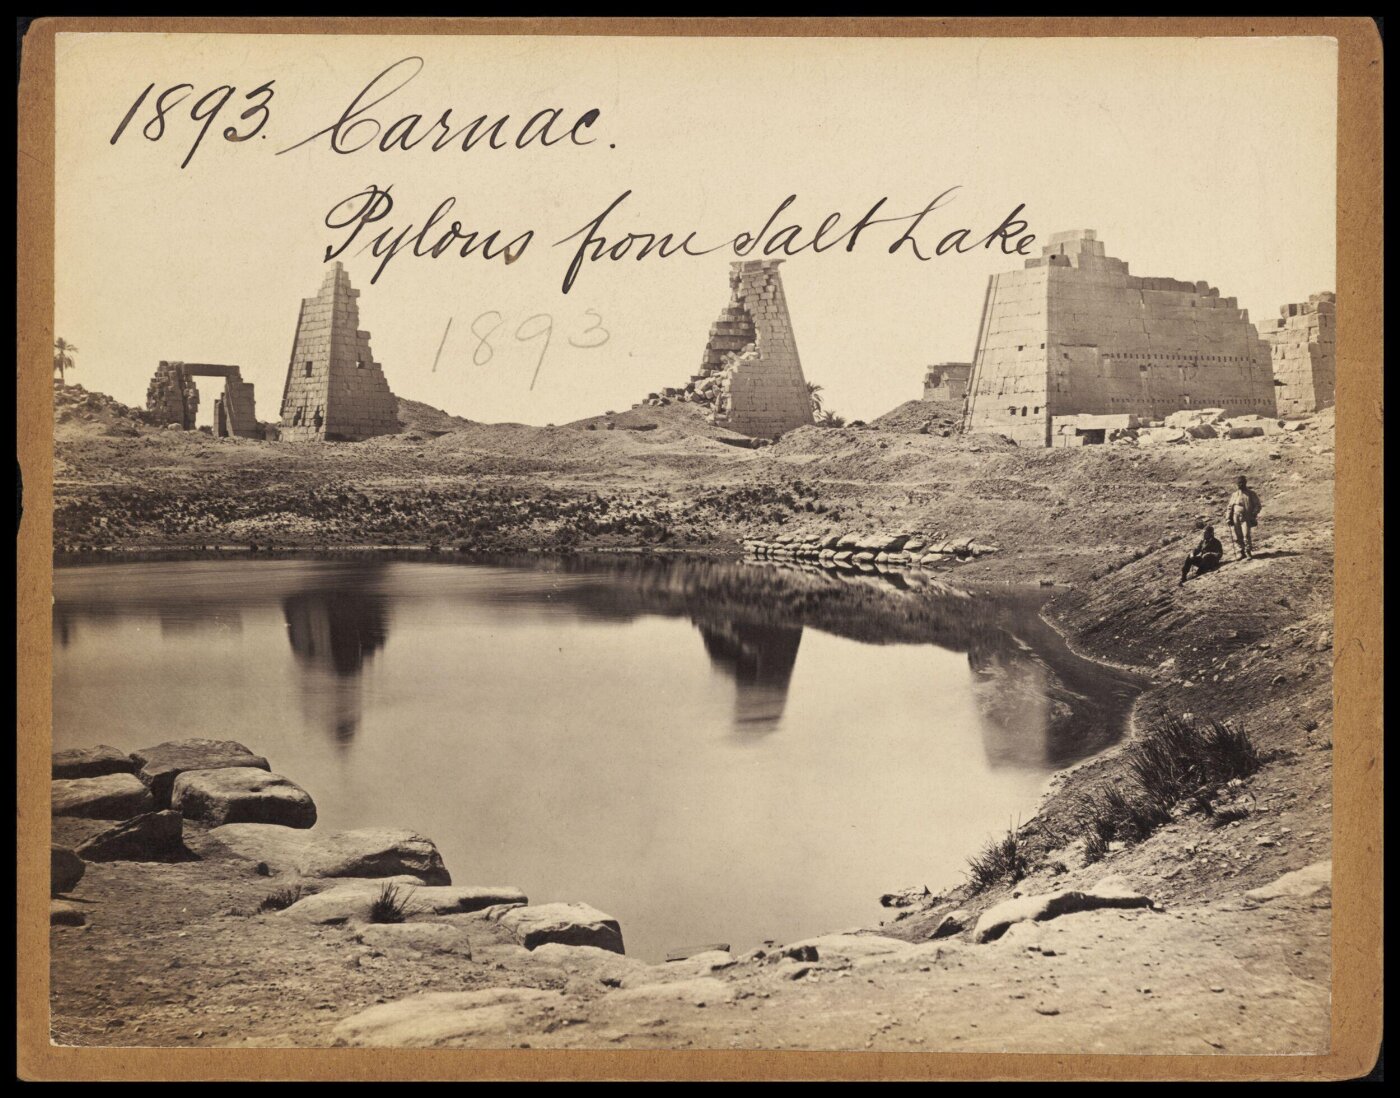 1893. Carnac.
Pylons from Salt Lake
1893.